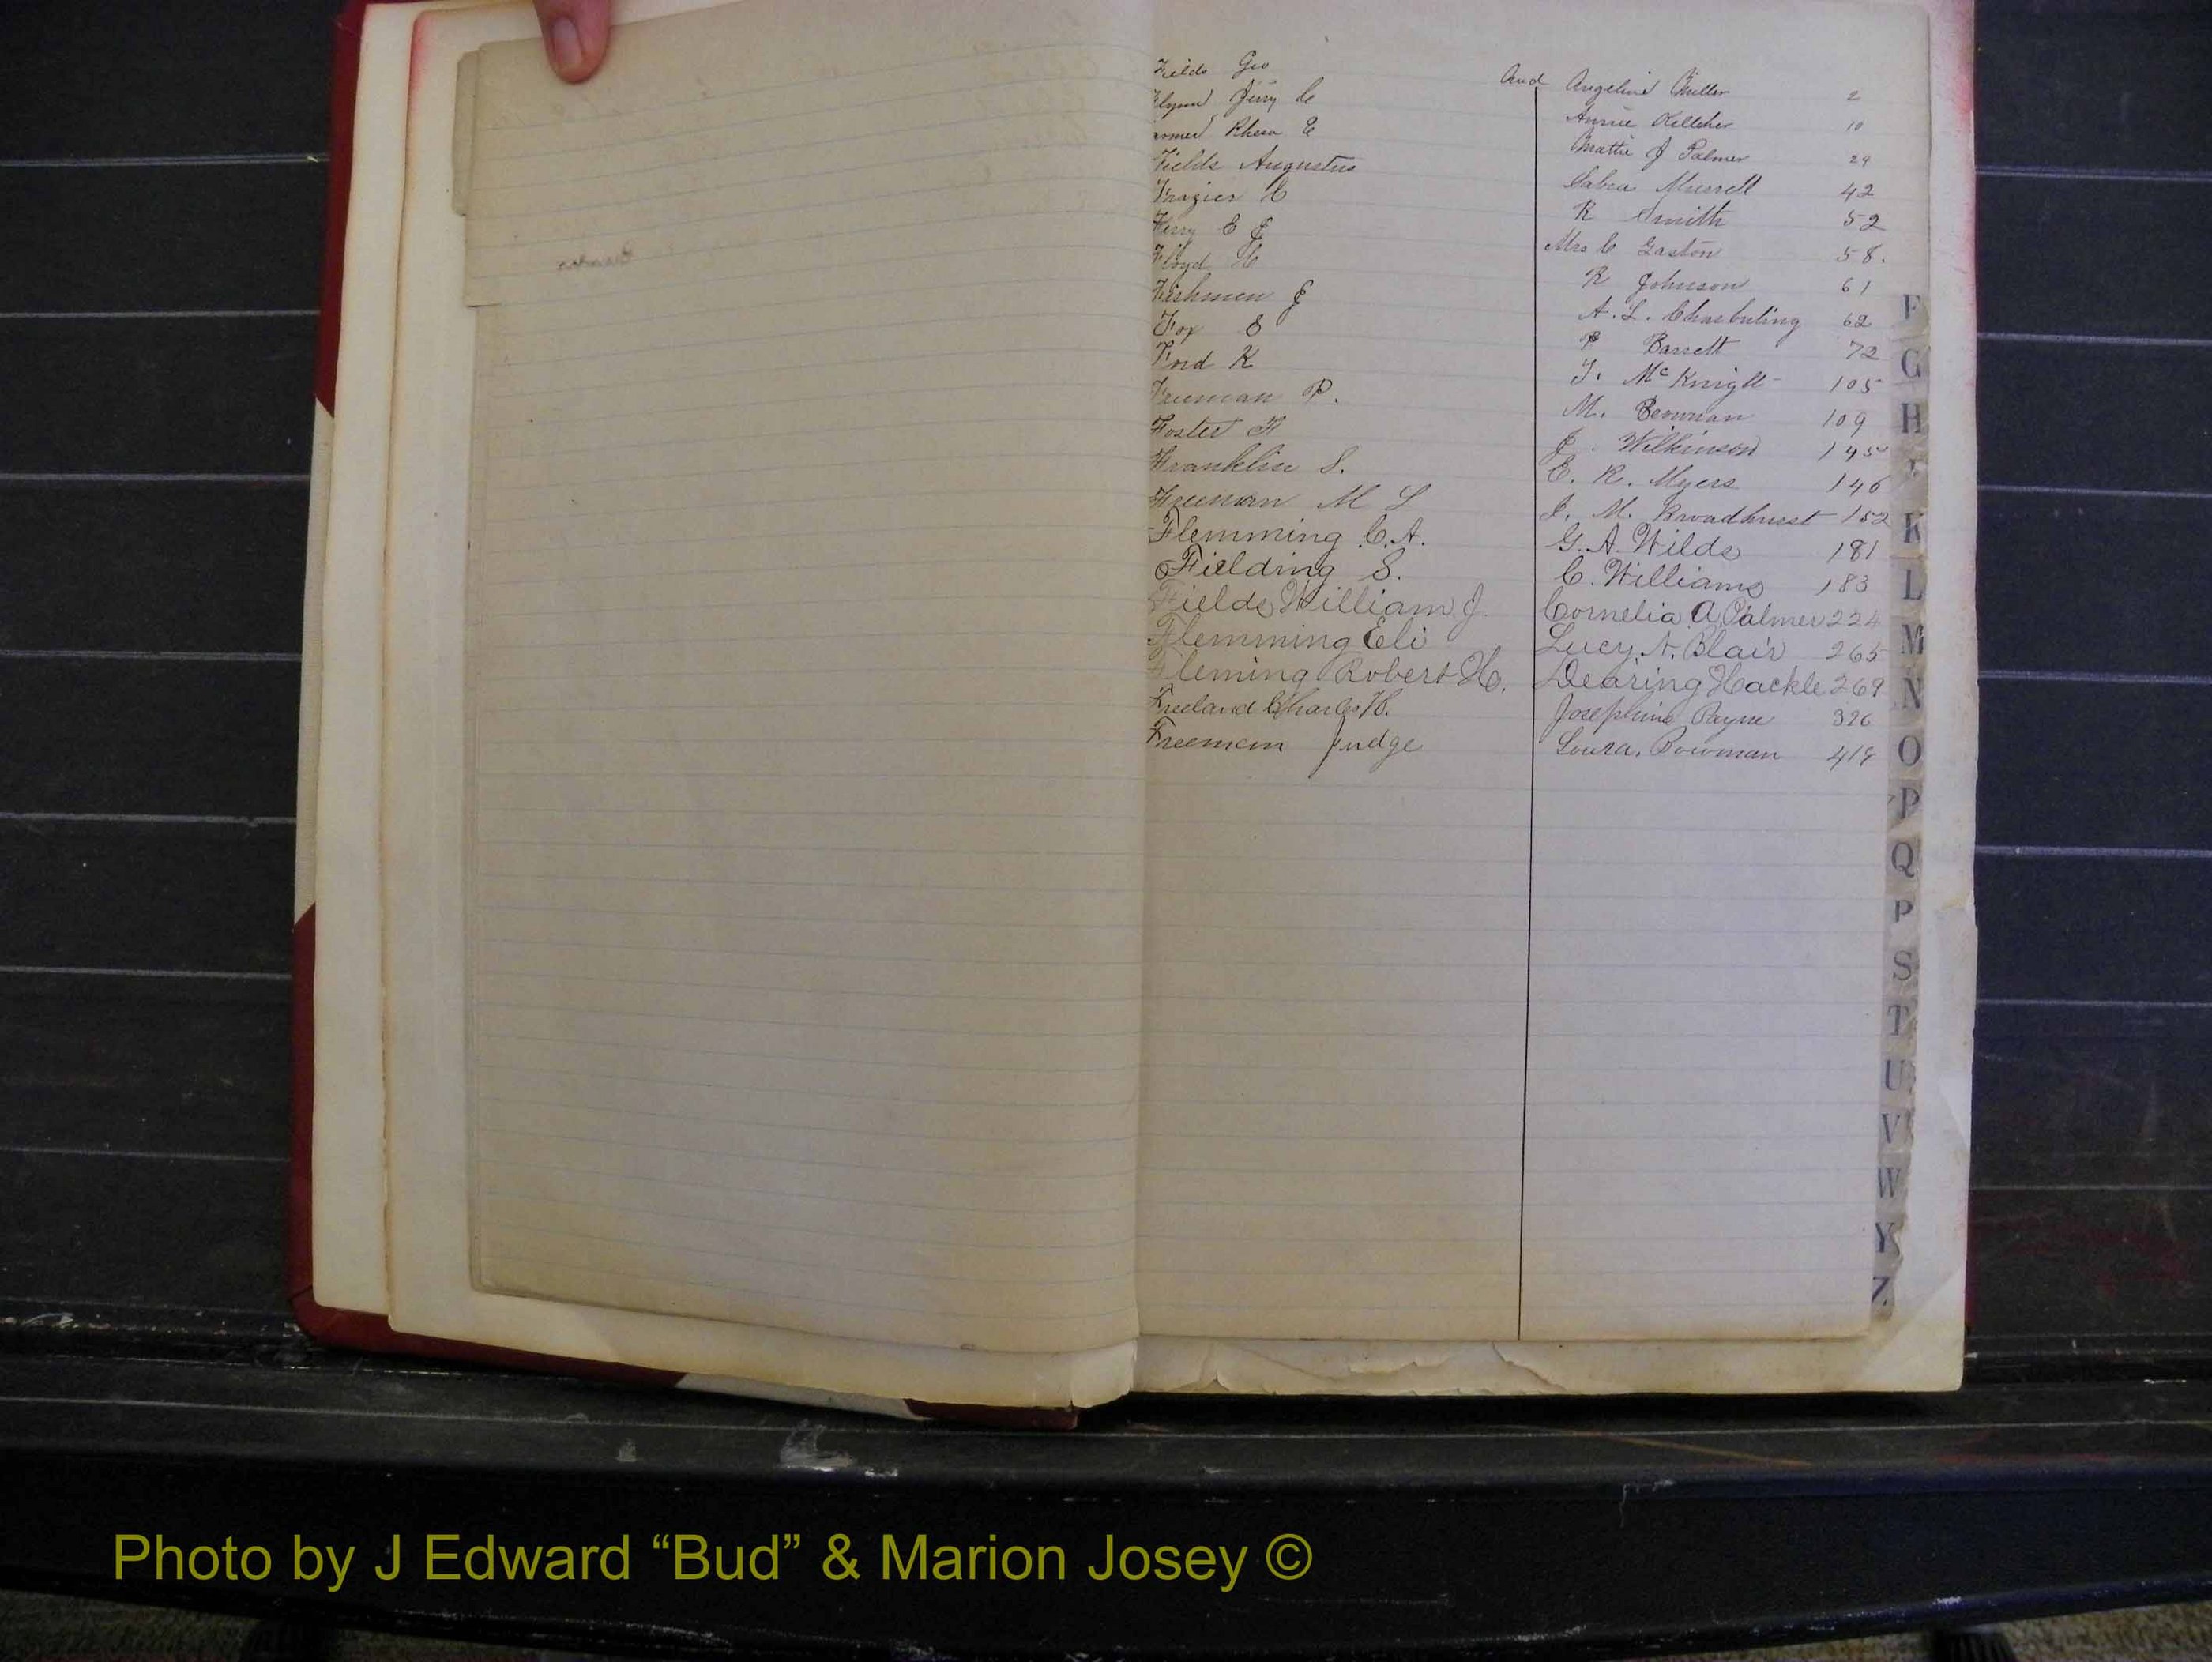 Fields Geo And Angeline Miller 2
Flynn Jerry C Annie Kelleher 10
Farmer Rhesa E Mattie J Palmer 24
Fields Augustus Sabra Murrell 42
Frazier H R Smith 52
Ferry E J Mrs C Gaston 58.
Floyd H R Johnson 61
Fishmen J A. L. 62
Fox S P Barrett 72
Ford K J. McKnight 105
Freeman P. M. Bowman 109
Foster F J. Wilkinson 145
Franklin S. E. R. Myers 146
Freeman M L J. M. Broadhurst 152
Flemming C. A. G. A. Wilds 181
Fielding S. C. Williams 183
Fields William J. Cornelia A. Palmer 224
Flemming Eli Lucy A. Blair 265
Fleming Robert H. Dearing Hackle 269
Freeland Charles H. Josephine Payne 396
Freeman Judge Loura. Bowman 418
F
G
H
K
L
M
N
O
P
Q
P
S
T
U
V
W
Y
Z
Photo by J Edward “Bud” & Marion Josey ©